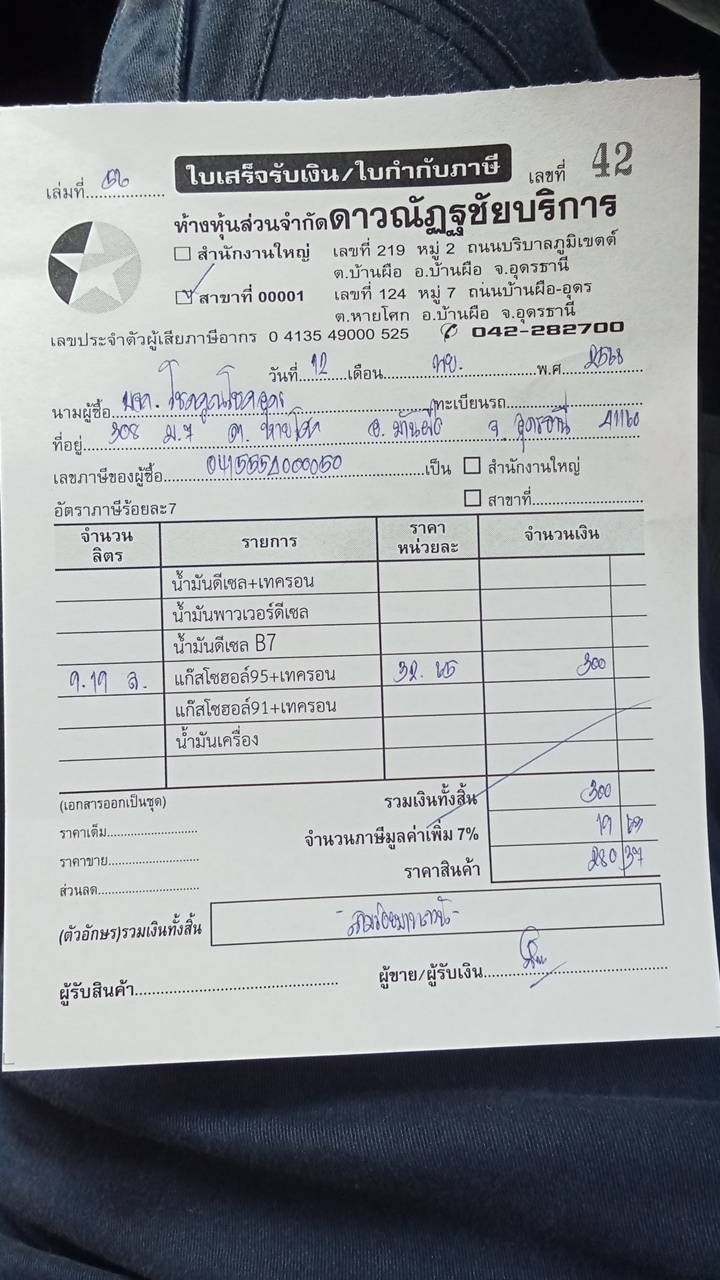 ใบเสร็จรับเงิน/ใบกำกับภาษี
เล่มที่ 56 เลขที่ 42
ห้างหุ้นส่วนจำกัดดาวณัฏฐชัยบริการ
สำนักงานใหญ่ เลขที่ 219 หมู่ 2 ถนนบริบาลภูมิเขตต์
ต.บ้านผือ อ.บ้านผือ จ.อุดรธานี
สาขาที่ 00001 เลขที่ 124 หมู่ 7 ถนนบ้านผือ-อุดร
ต.หายโศก อ.บ้านผือ จ.อุดรธานี
เลขประจำตัวผู้เสียภาษีอากร 0 4135 49000 525 042-282700
วันที่ 12 เดือน พย. พ.ศ. 2568
นามผู้ซื้อ หจก. ทะเบียนรถ
ที่อยู่ 308 ม.7 ต. หายโศก อ. บ้านผือ จ. อุดรธานี 41160
เลขภาษีของผู้ซื้อ เป็น สำนักงานใหญ่
อัตราภาษีร้อยละ7 สาขาที่
จำนวนลิตร รายการ ราคาหน่วยละ จำนวนเงิน
น้ำมันดีเซล+เทครอน
น้ำมันพาวเวอร์ดีเซล
น้ำมันดีเซล B7
9.19 ล. แก๊สโซฮอล์95+เทครอน 32. 65 300
แก๊สโซฮอล์91+เทครอน
น้ำมันเครื่อง
(เอกสารออกเป็นชุด) รวมเงินทั้งสิ้น 300
ราคาเต็ม จำนวนภาษีมูลค่าเพิ่ม 7% 19 63
ราคาขาย ราคาสินค้า 280 37
ส่วนลด
(ตัวอักษร)รวมเงินทั้งสิ้น -สามร้อยบาทถ้วน-
ผู้รับสินค้า ผู้ขาย/ผู้รับเงิน